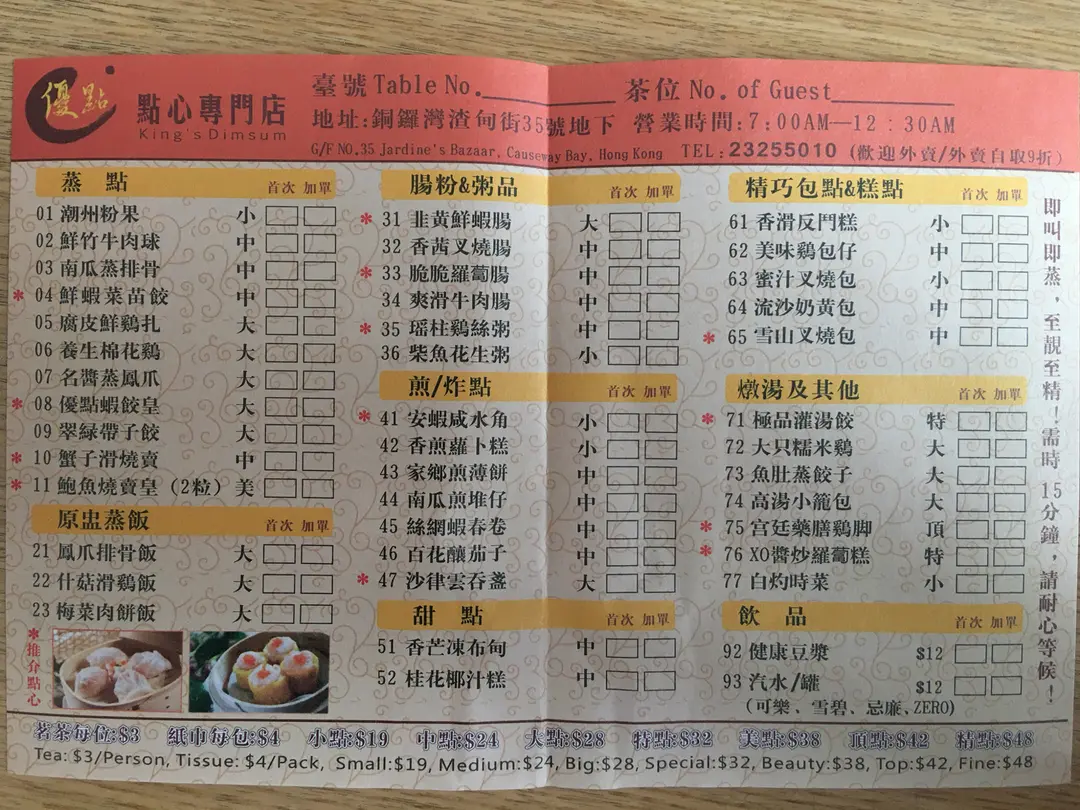 優點
點心專門店
King'sDimsum
臺號Table No.
茶位No. of Guest
地址:銅鑼灣渣甸街35號地下 營業時間:7:00AM—12:30AM
G/F NO.35 Jardine's Bazaar, Causeway Bay, Hong Kong TEL:23255010 (歡迎外賣/外賣自取9折)
蒸 點 首次 加單
01 潮州粉果 小
02 鮮竹牛肉球 中
03 南瓜蒸排骨 中
*04 鮮蝦菜苗餃 中
05 腐皮鮮鷄扎 大
06 養生棉花鷄 大
07 名醬蒸鳳爪 大
*08 優點蝦餃皇 大
09 翠緑帶子餃 大
*10 蟹子滑燒賣 中
*11 鮑魚燒賣皇(2粒) 美
原盅蒸飯 首次 加單
21 鳳爪排骨飯 大
22 什菇滑鷄飯 大
23 梅菜肉餅飯 大
*推介點心
腸粉&粥品 首次 加單
*31 韭黄鮮蝦腸 大
32 香茜叉燒腸 中
*33 脆脆羅蔔腸 中
34 爽滑牛肉腸 中
*35 瑶柱鷄絲粥 中
36 柴魚花生粥 小
煎/炸點 首次 加單
*41 安蝦咸水角 小
42 香煎蘿卜糕 小
43 家鄉煎薄餅 中
44 南瓜煎堆仔 中
45 絲網蝦春卷 中
46 百花釀茄子 中
*47 沙律雲吞盞 大
甜 點 首次 加單
51 香芒凍布甸 中
52 桂花椰汁糕 中
精巧包點&糕點 首次 加單
61 香滑反鬥糕 小
62 美味鷄包仔 中
63 蜜汁叉燒包 小
64 流沙奶黄包 中
*65 雪山叉燒包 中
燉湯及其他 首次 加單
*71 極品灌湯餃 特
72 大只糯米鷄 大
73 魚肚蒸餃子 大
74 高湯小籠包 大
*75 宫廷藥膳鷄脚 頂
*76 XO醬炒羅蔔糕 特
77 白灼時菜 小
飲 品 首次 加單
92 健康豆漿 $12
93 汽水/罐 $12
(可樂、雪碧、忌廉、ZERO)
即叫即蒸，至靚至精！需時15分鐘，請耐心等候！
茗茶每位:$3 紙巾每包:$4 小點:$19 中點:$24 大點:$28 特點:$32 美點:$38 頂點:$42 精點:$48
Tea: $3/Person, Tissue: $4/Pack, Small:$19, Medium:$24, Big:$28, Special:$32, Beauty:$38, Top:$42, Fine:$48